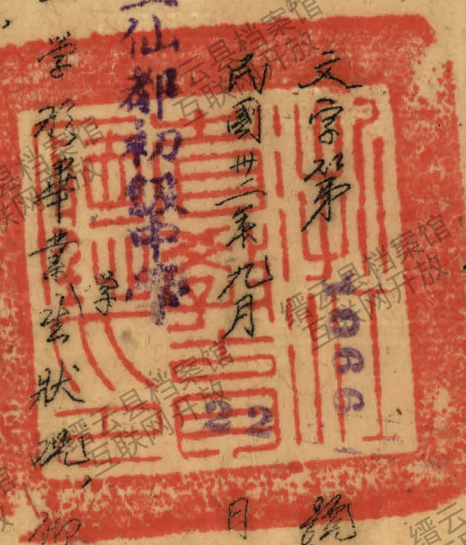 文字第1966號
民國卅二年九月22日
仙都初級中學
学
学校畢業生狀況，仰
缙云县档案馆
互联网开放